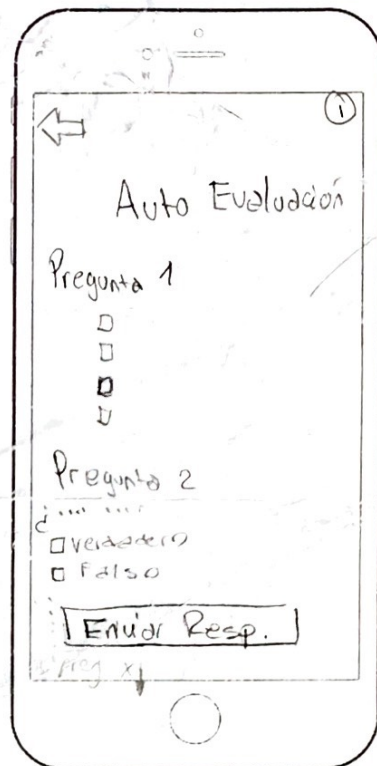 i
Auto Evaluación
Pregunta 1
Pregunta 2
¿ .... ....
Verdadero
Falso
Enviar Resp.
Preg X